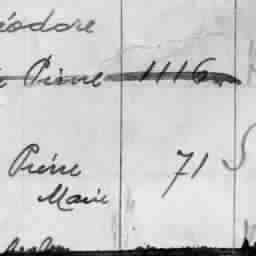 éodore
Pierre 1116
Pierre 71
Marie